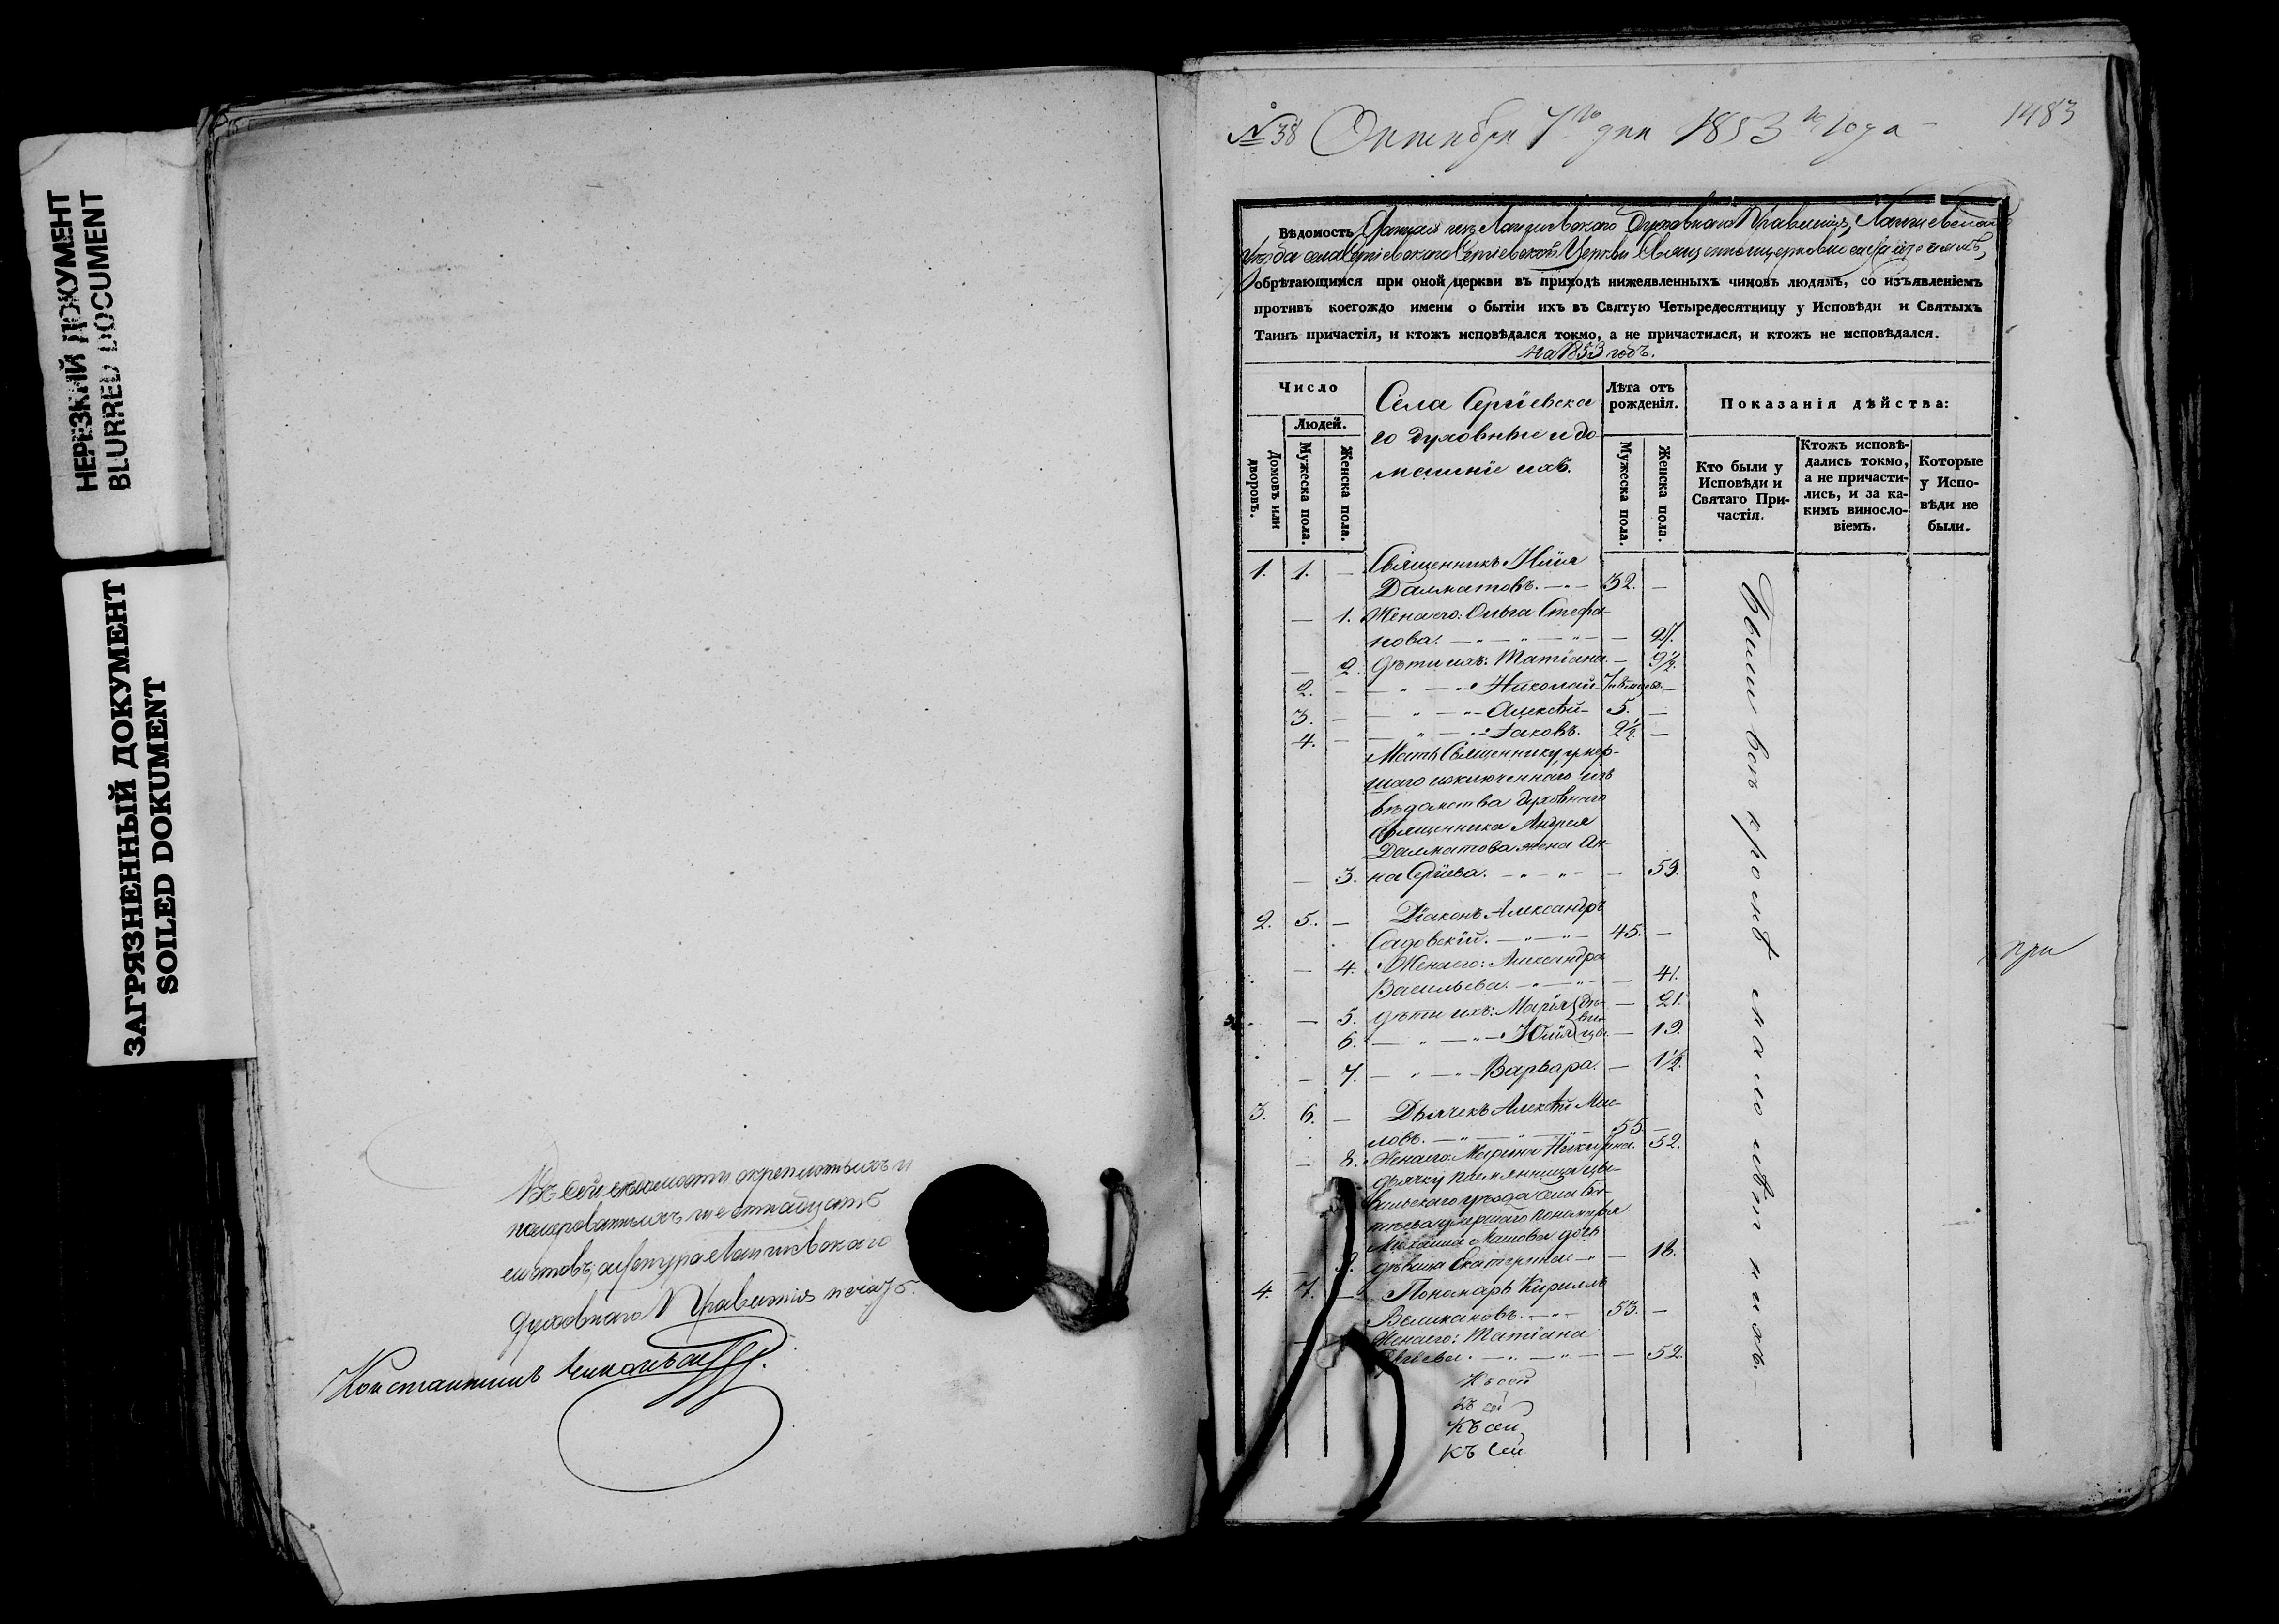 НЕРЕЗКИЙ ДОКУМЕНТ
BLURRED DOCUMENT
ЗАГРЯЗНЕННЫЙ ДОКУМЕНТ
SOILED DOKUMENT
Въ сей
листовъ,
Духовнаго Правленія печать.
Константинъ
№ 38 Октября 7го дня 1853го года
1483
Вѣдомость Данная изъ Лаишевского Духовнаго Правленія, Лаишевскаго
Уѣзда села Сергіевскаго Сергіевской Церкви Священноцерковнослужителямъ,
обрѣтающимся при оной церкви въ приходѣ нижеявленныхъ чиновъ людямъ, со изъявленіемъ
противъ коегождо имени о бытіи ихъ въ Святую Четыредесятницу у Исповѣди и Святыхъ
Таинъ причастія, и ктожъ исповѣдался токмо, а не причастился, и ктожъ не исповѣдался.
на 1853 годъ.
Число
Людей.
Домовъ или дворовъ.
Мужеска пола.
Женска пола.
Села Сергіевска
го духовные и до
машніе ихъ.
Лѣта отъ рожденія.
Мужеска пола.
Женска пола.
Показанія дѣйства:
Кто были у Исповѣди и Святаго Причастія.
Ктожъ исповѣдались токмо, а не причастились, и за какимъ винословіемъ.
Которые у Исповѣди не были.
1. 1. — Священникъ Илія
Далматовъ. 32. —
— 1. Жена его: Ольга Стефа-
нова. —
— 2. Дѣти ихъ: Татіана. — 9½.
2. — Николай
3. — Алексѣй 5. —
4. — Іаковъ. 2½. —
Мать Священнику, умер-
шаго исключеннаго изъ
вѣдомства духовнаго
священника Андрея
Далматова жена Ан-
— 3. на Сергіева. — 59.
2. 5. — Діаконъ Александръ
Садовскій. 45. —
— 4. Жена его: Александра
Васильева. — 41.
— 5. Дѣти ихъ: Марія дѣ- — 21.
6. Юлія ви-цы — 19.
— 7. Варвара. — 1½.
3. 6. — Дьячекъ Алексѣй Мас-
ловъ. 55. —
— 8. Жена его: Марина 52.
Дьячку племянница
уѣзда села
умершаго пономаря
Михаила дочь
9. дѣвица Екатерина — 18.
4. 7. — Пономарь Кириллъ
Великановъ. 53. —
Жена его: Татіана
— 52.
Къ сей
Къ сей
Къ сей
Къ сей
Были всѣ кромѣ малолѣтнихъ.
при